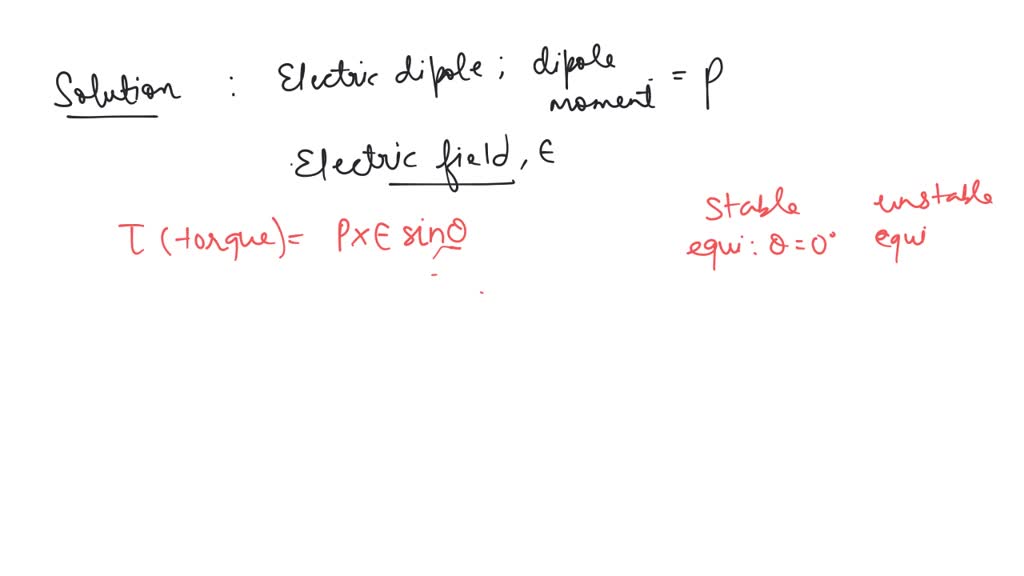 Solution : Electric dipole ; dipole moment = p
Electric field, E
τ (torque) = P×E sinθ
Stable equi : θ = 0°
unstable equi